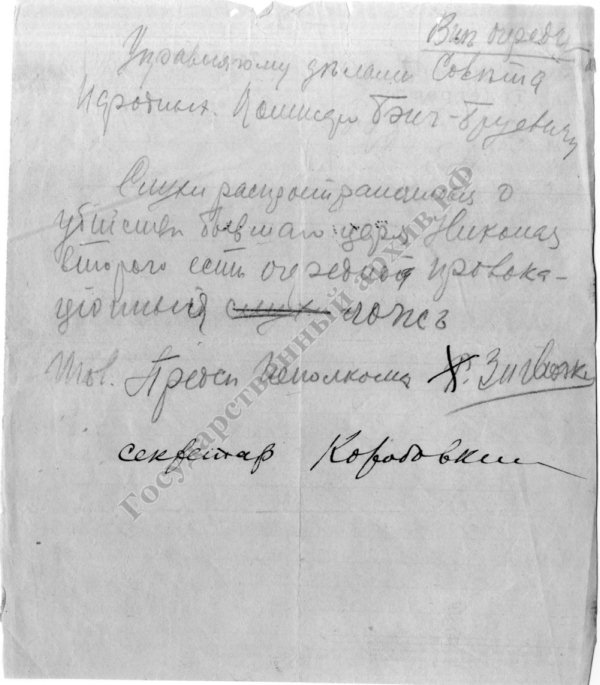 Вне очереди
Управляющему делами Совета
Народных. Комиссаров Бонч-Бруевичу
Слухи распространяющ о
убийстве бывшаго царя Николая
второго есть очередной провока-
ционный слух ложь
Тов. Предсе Исполкома
секретар Коробовкин
Государственный архив.рф